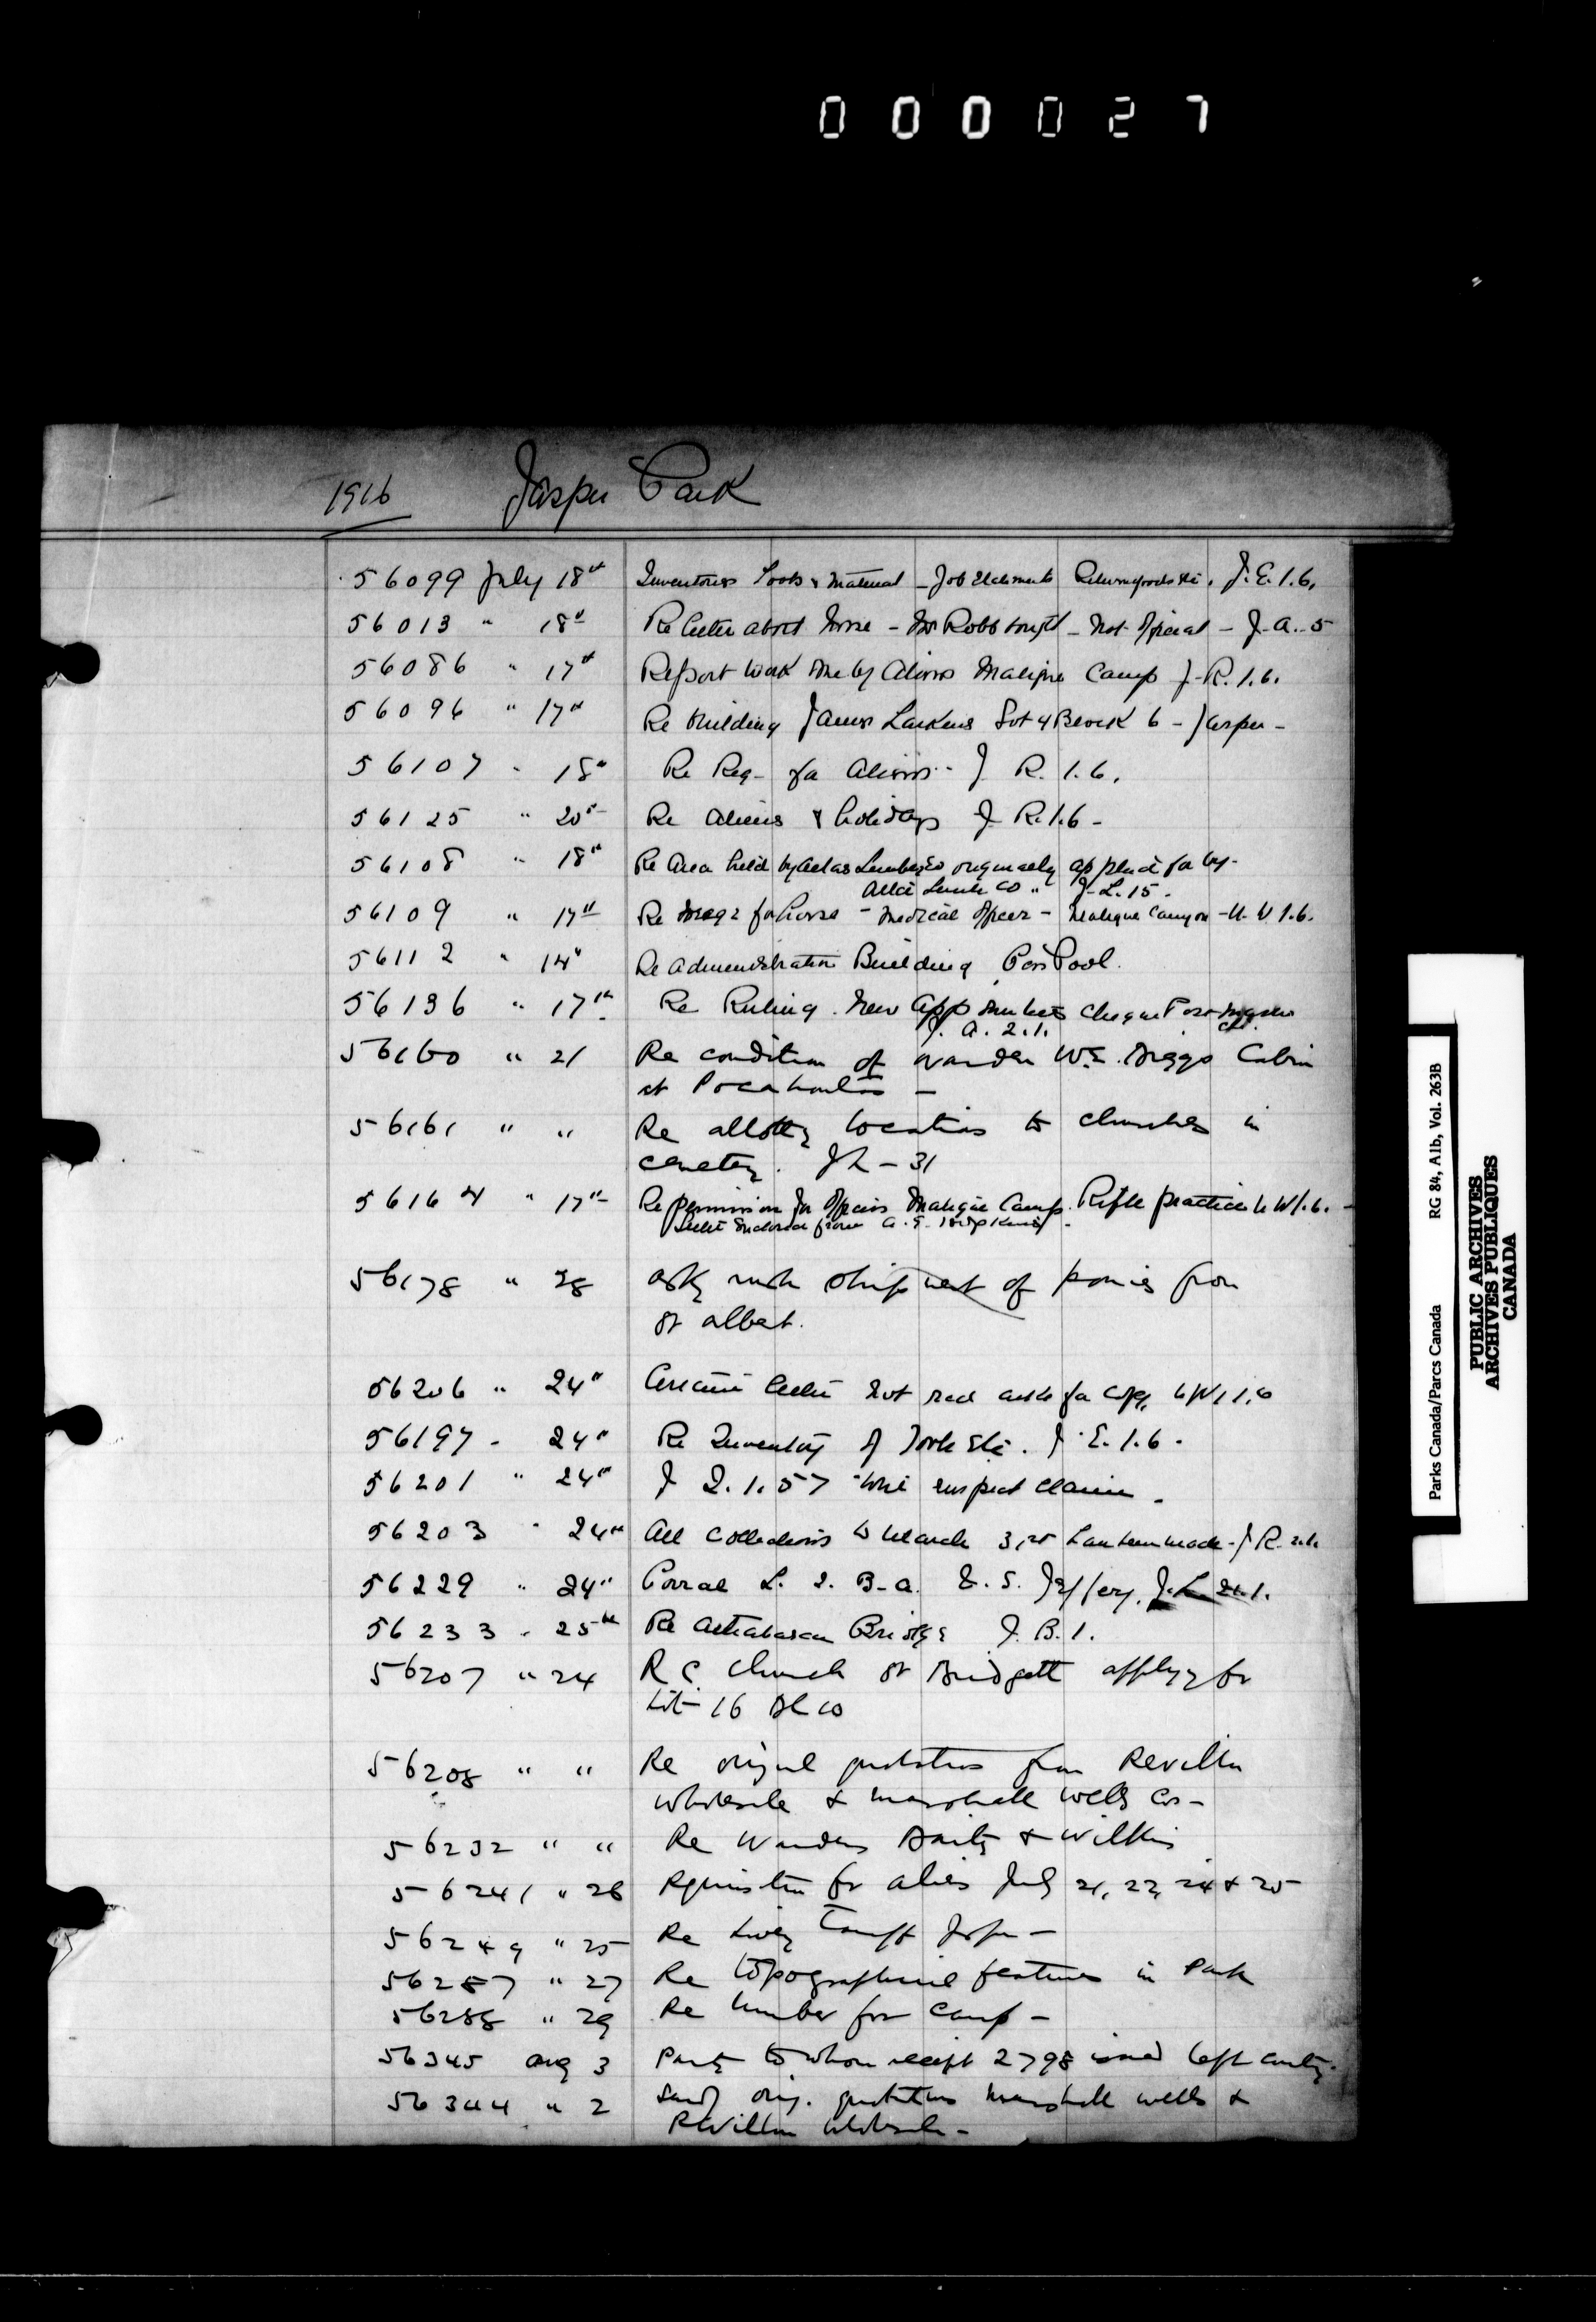 000027
1916 Jasper Park
56099 July 18th Inventories Tools & Material - Job J.E.1.6.
56013 " 18th Re letter about horse - Mr Robb bought - Not Official - J.A.5
56086 " 17th Report work done by Aliens Maligne Camp J.R.1.6.
56096 " 17th Re building James Larkens Lot 4 Block 6 - Jasper -
56107 " 18th Re Req- for Aliens - J R.1.6.
56125 " 20th Re Aliens & holidays J R.1.6 -
56108 " 18th Re Area held by Atlas Lumber Co originally applied for by -
Lumber Co " J-L.15.
56109 " 17th Re for horse - Medical Officer - Maligne Canyon - U.W.1.6.
56112 " 14th Re Administration Building Pool.
56136 " 17th Re Ruling. New App
J.A.2.1.
56160 " 21 Re condition of warden W.E. Briggs Cabin
at Pocahontas -
56161 " " Re allotting locations to churches in
cemetery. JL-31
56164 " 17th Re permission for Officers Maligne Camp. Rifle practice U W 1.6. -
Letter enclosed from A.E. Hopkins -
56178 " 28 Ask rush shipment of ponies from
St Albert.
56206 " 24th letter not recd asks for copy, U W, 1,6
56197 - 24th Re Inventory of Tools Etc. J.E.1.6.
56201 " 24th J 2.1.57 Will inspect claim.
56203 " 24th All collections to March 31st have been made - J R 2.1.
56229 " 24th Corral L. 2. B-A. E.S. Jeffery. J.L 21.1.
56233 " 25th Re Athabasca Bridge J.B.1.
56207 " 24 R C Church St Bridgett applyg for
Lot 16 Bl 10
56208 " " Re original quotations from Revillon
Wholesale & Marshall Wells Co -
56232 " " Re Wardens & Wilkins
56241 " 26 Requisition for aliens July 21, 22, 24 & 25
56249 " 25 Re Livery Tariff Jasper -
56257 " 27 Re topographical features in Park
56288 " 29 Re lumber for Camp -
56345 Aug 3 Party to whom receipt 2798 issued left country.
56344 " 2 Sendg orig. quotations Marshall Wells &
Revillon Wholesale -
Parks Canada/Parcs Canada RG 84, A1b, Vol. 263B
PUBLIC ARCHIVES
ARCHIVES PUBLIQUES
CANADA